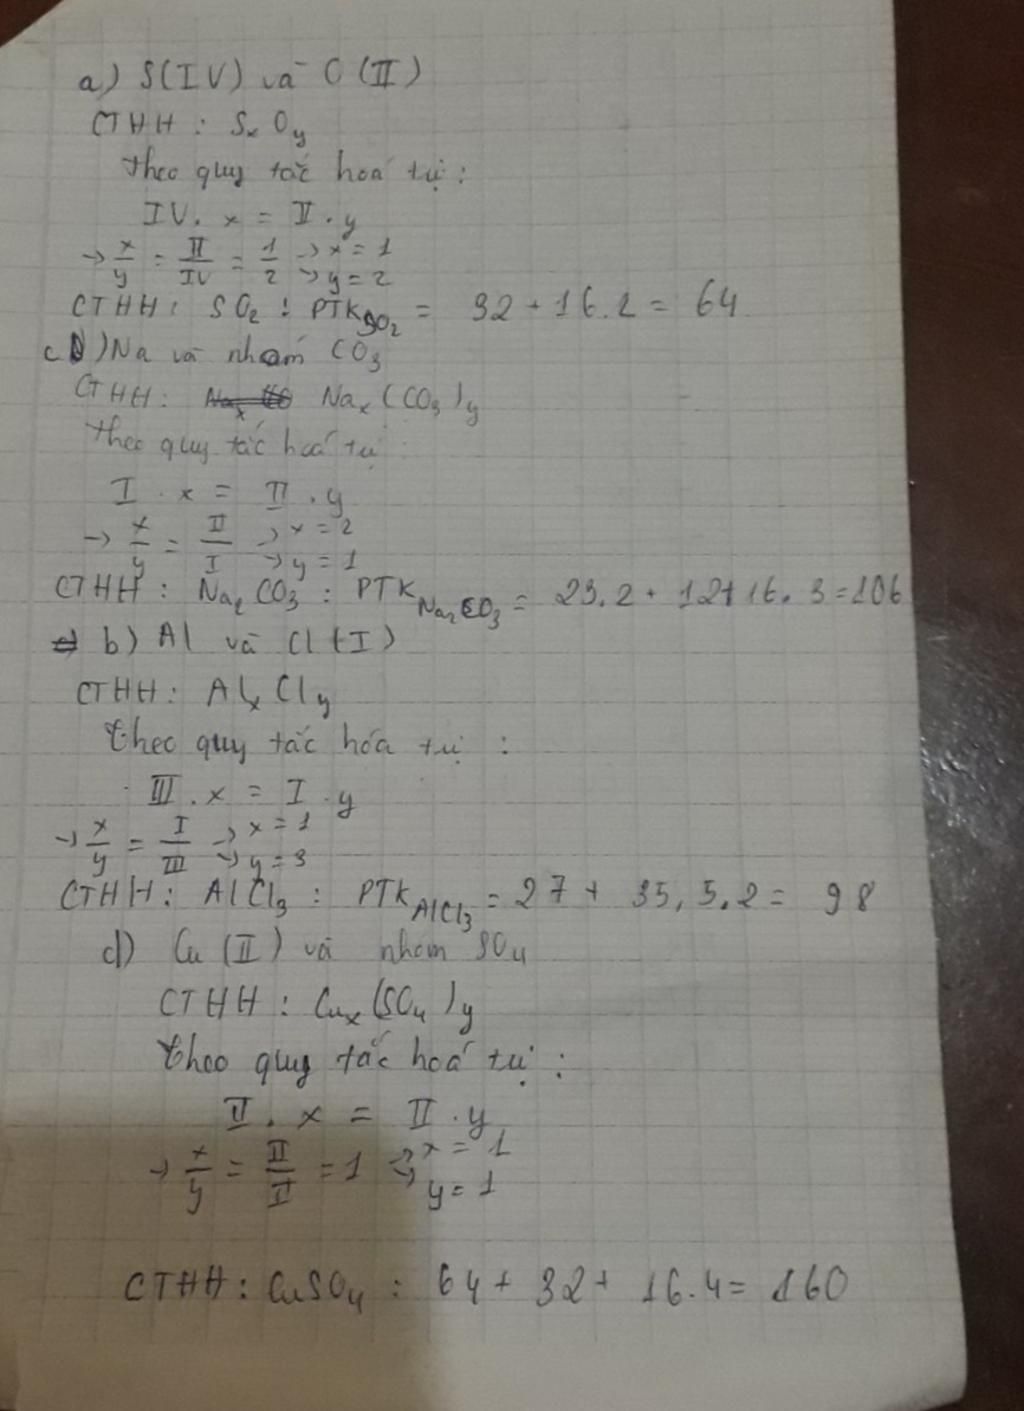 a) S(IV) và O (II)
CTHH : SxOy
theo quy tắc hoá tự :
IV. x = II . y
→ x/y = II/IV = 1/2 → x = 1 → y = 2
CTHH : SO2 : PTK SO2 = 32 + 16.2 = 64
c) Na và nhóm CO3
CTHH : Nax(CO3)y
theo quy tắc hoá tự
I . x = II . y
→ x/y = II/I → x = 2 → y = 1
CTHH : Na2CO3 : PTK Na2CO3 = 23.2 + 12+16. 3=106
b) Al và Cl (I)
CTHH : AlxCly
theo quy tắc hóa tự :
III . x = I . y
→ x/y = I/III → x = 1 → y = 3
CTHH : AlCl3 : PTK AlCl3 = 27 + 35,5.2 = 98
d) Cu (II) và nhóm SO4
CTHH : Cux(SO4)y
theo quy tắc hoá tự :
II . x = II . y
→ x/y = II/II = 1 → x = 1 → y = 1
CTHH : CuSO4 : 64 + 32 + 16.4 = 160